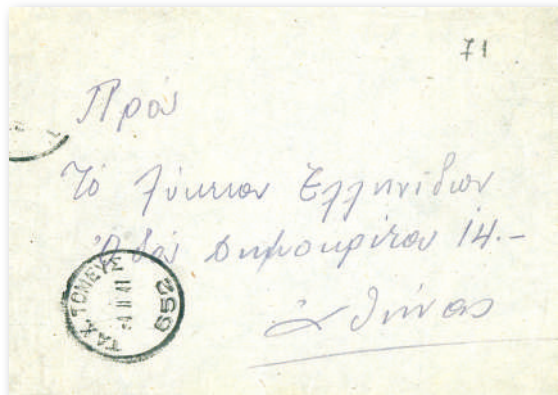 71
Πρός
Τό Λύκειον Ἑλληνίδων
Ὁδός Δημοκρίτου 14.-
Ἀθήνας
ΤΑΧ. ΤΟΜΕΥΣ
II 41
652